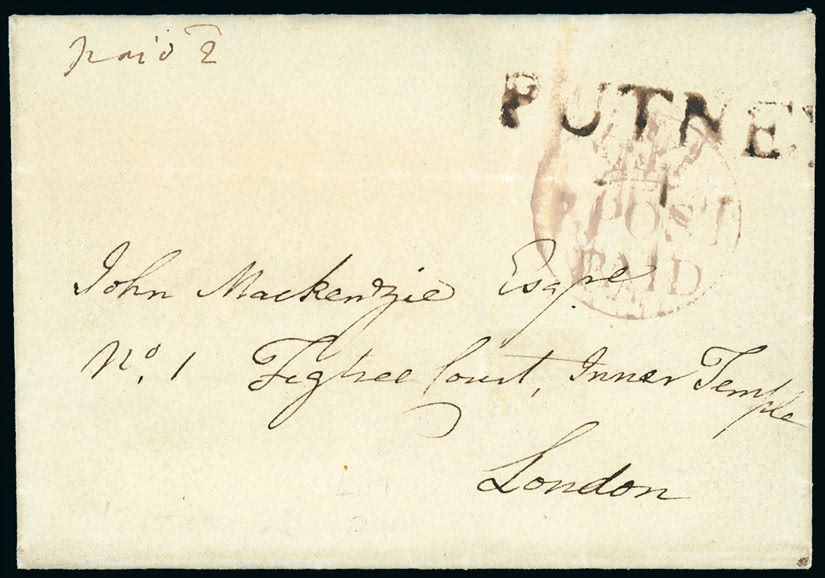 Paid 2
PUTNEY
POST
PAID
John Mackenzie Esqre
No. 1 Figtree Court, Inner Temple
London